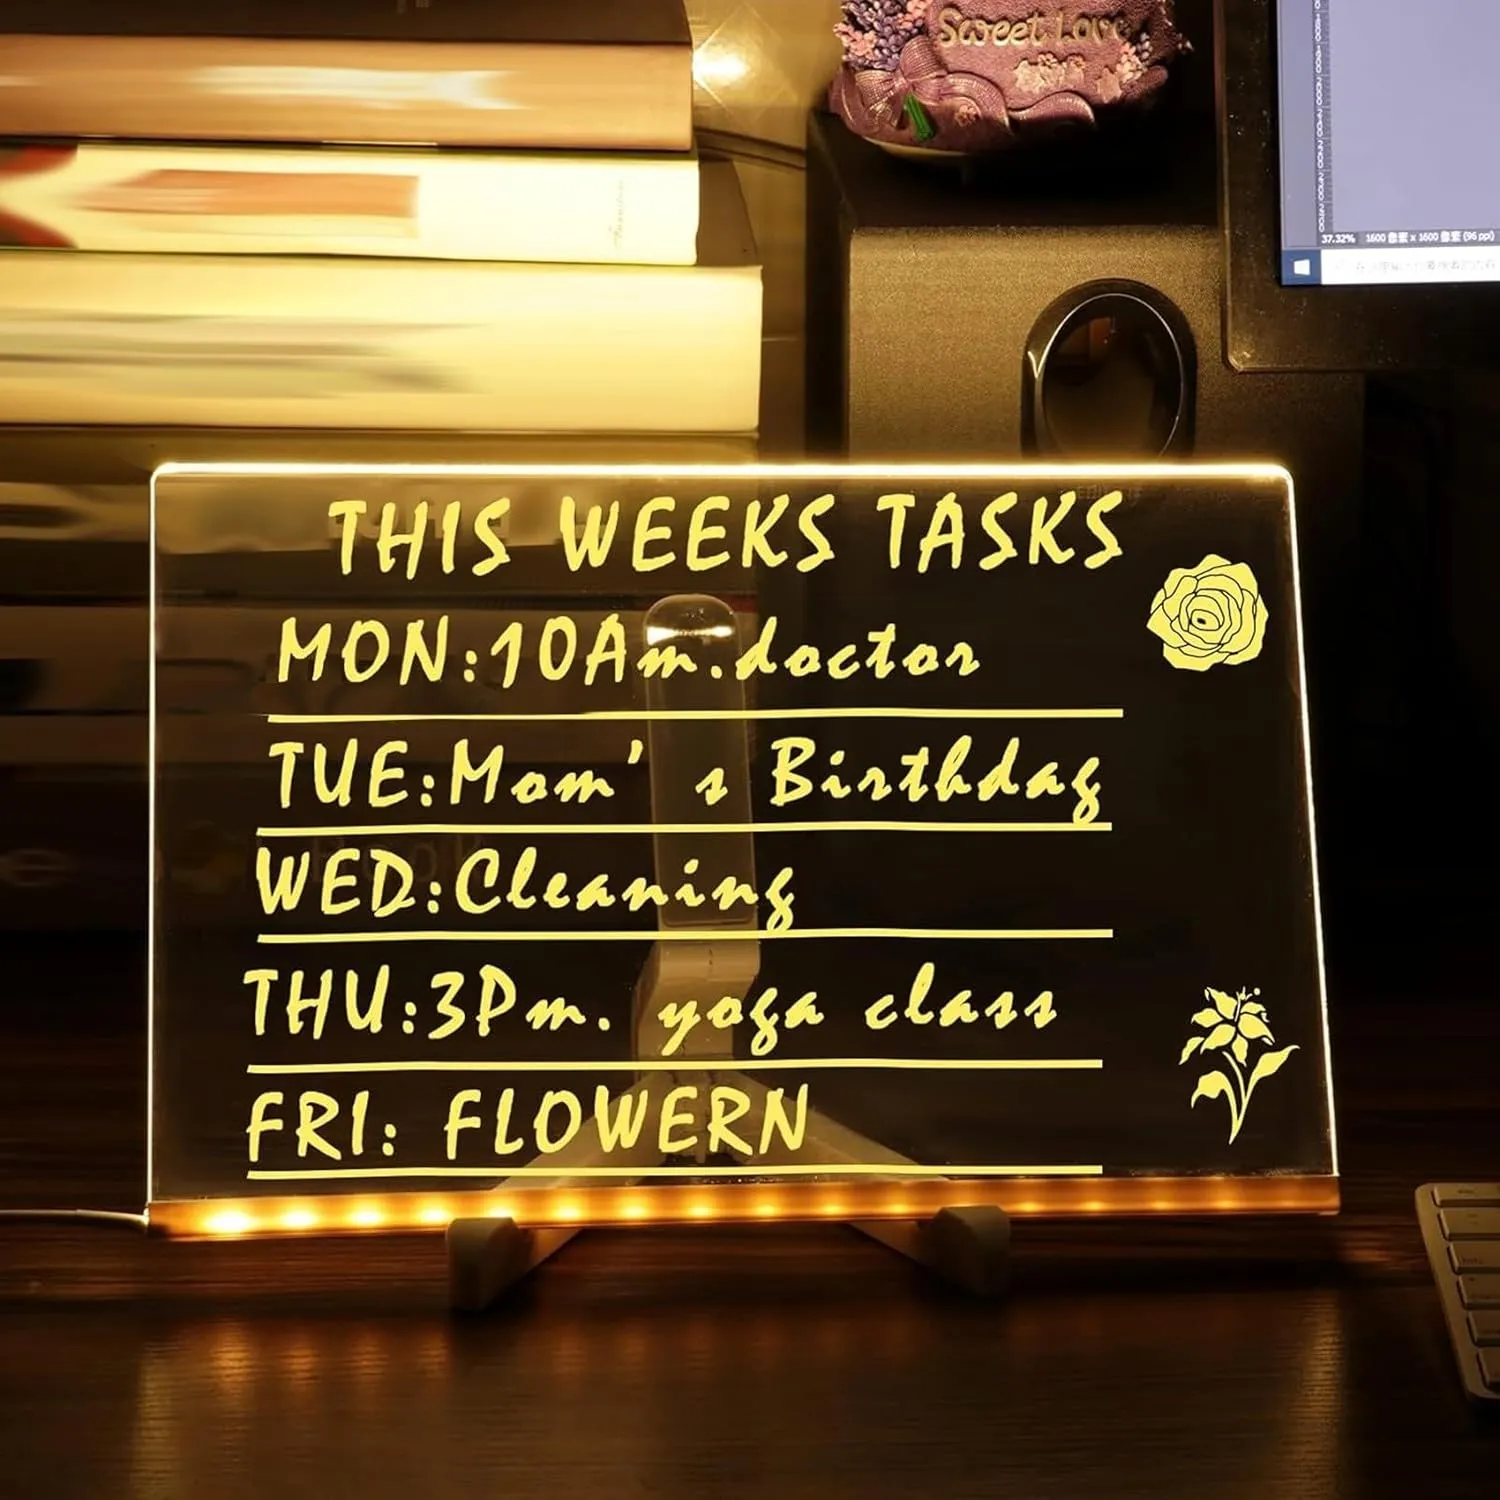 Sweet Love
37.32% 1600 像素 x 1600 像素 (96 ppi)
THIS WEEKS TASKS
MON:10Am.doctor
TUE:Mom's Birthday
WED:Cleaning
THU:3Pm. yoga class
FRI: FLOWERN